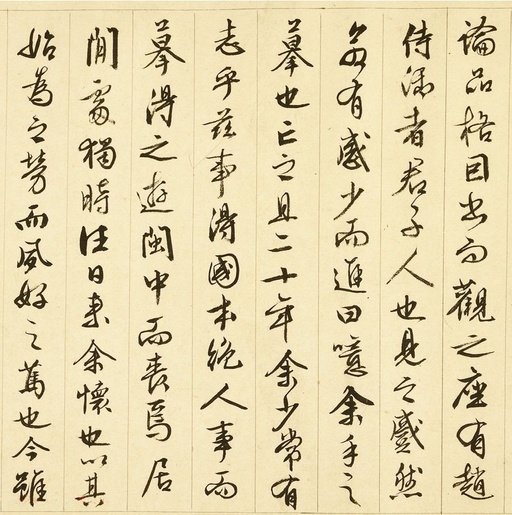 論品格因出而觀之座有趙
侍御者君子人也見之慼然
若有感少而進曰噫余手之
摹也亡之且二十年余少常有
志乎茲事得國本絕人事而
摹得之遊閩中而喪焉居
閒處獨時往日来余懷也以其
始為之勞而夙好之篤也今雖